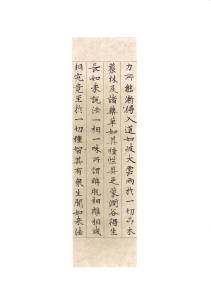 力所能漸得入道如彼大雲雨於一切卉木
叢林及諸藥草如其種性具足蒙潤各得生
長如來說法一相一味所謂解脫相離相滅
相究竟至於一切種智其有眾生聞如來法